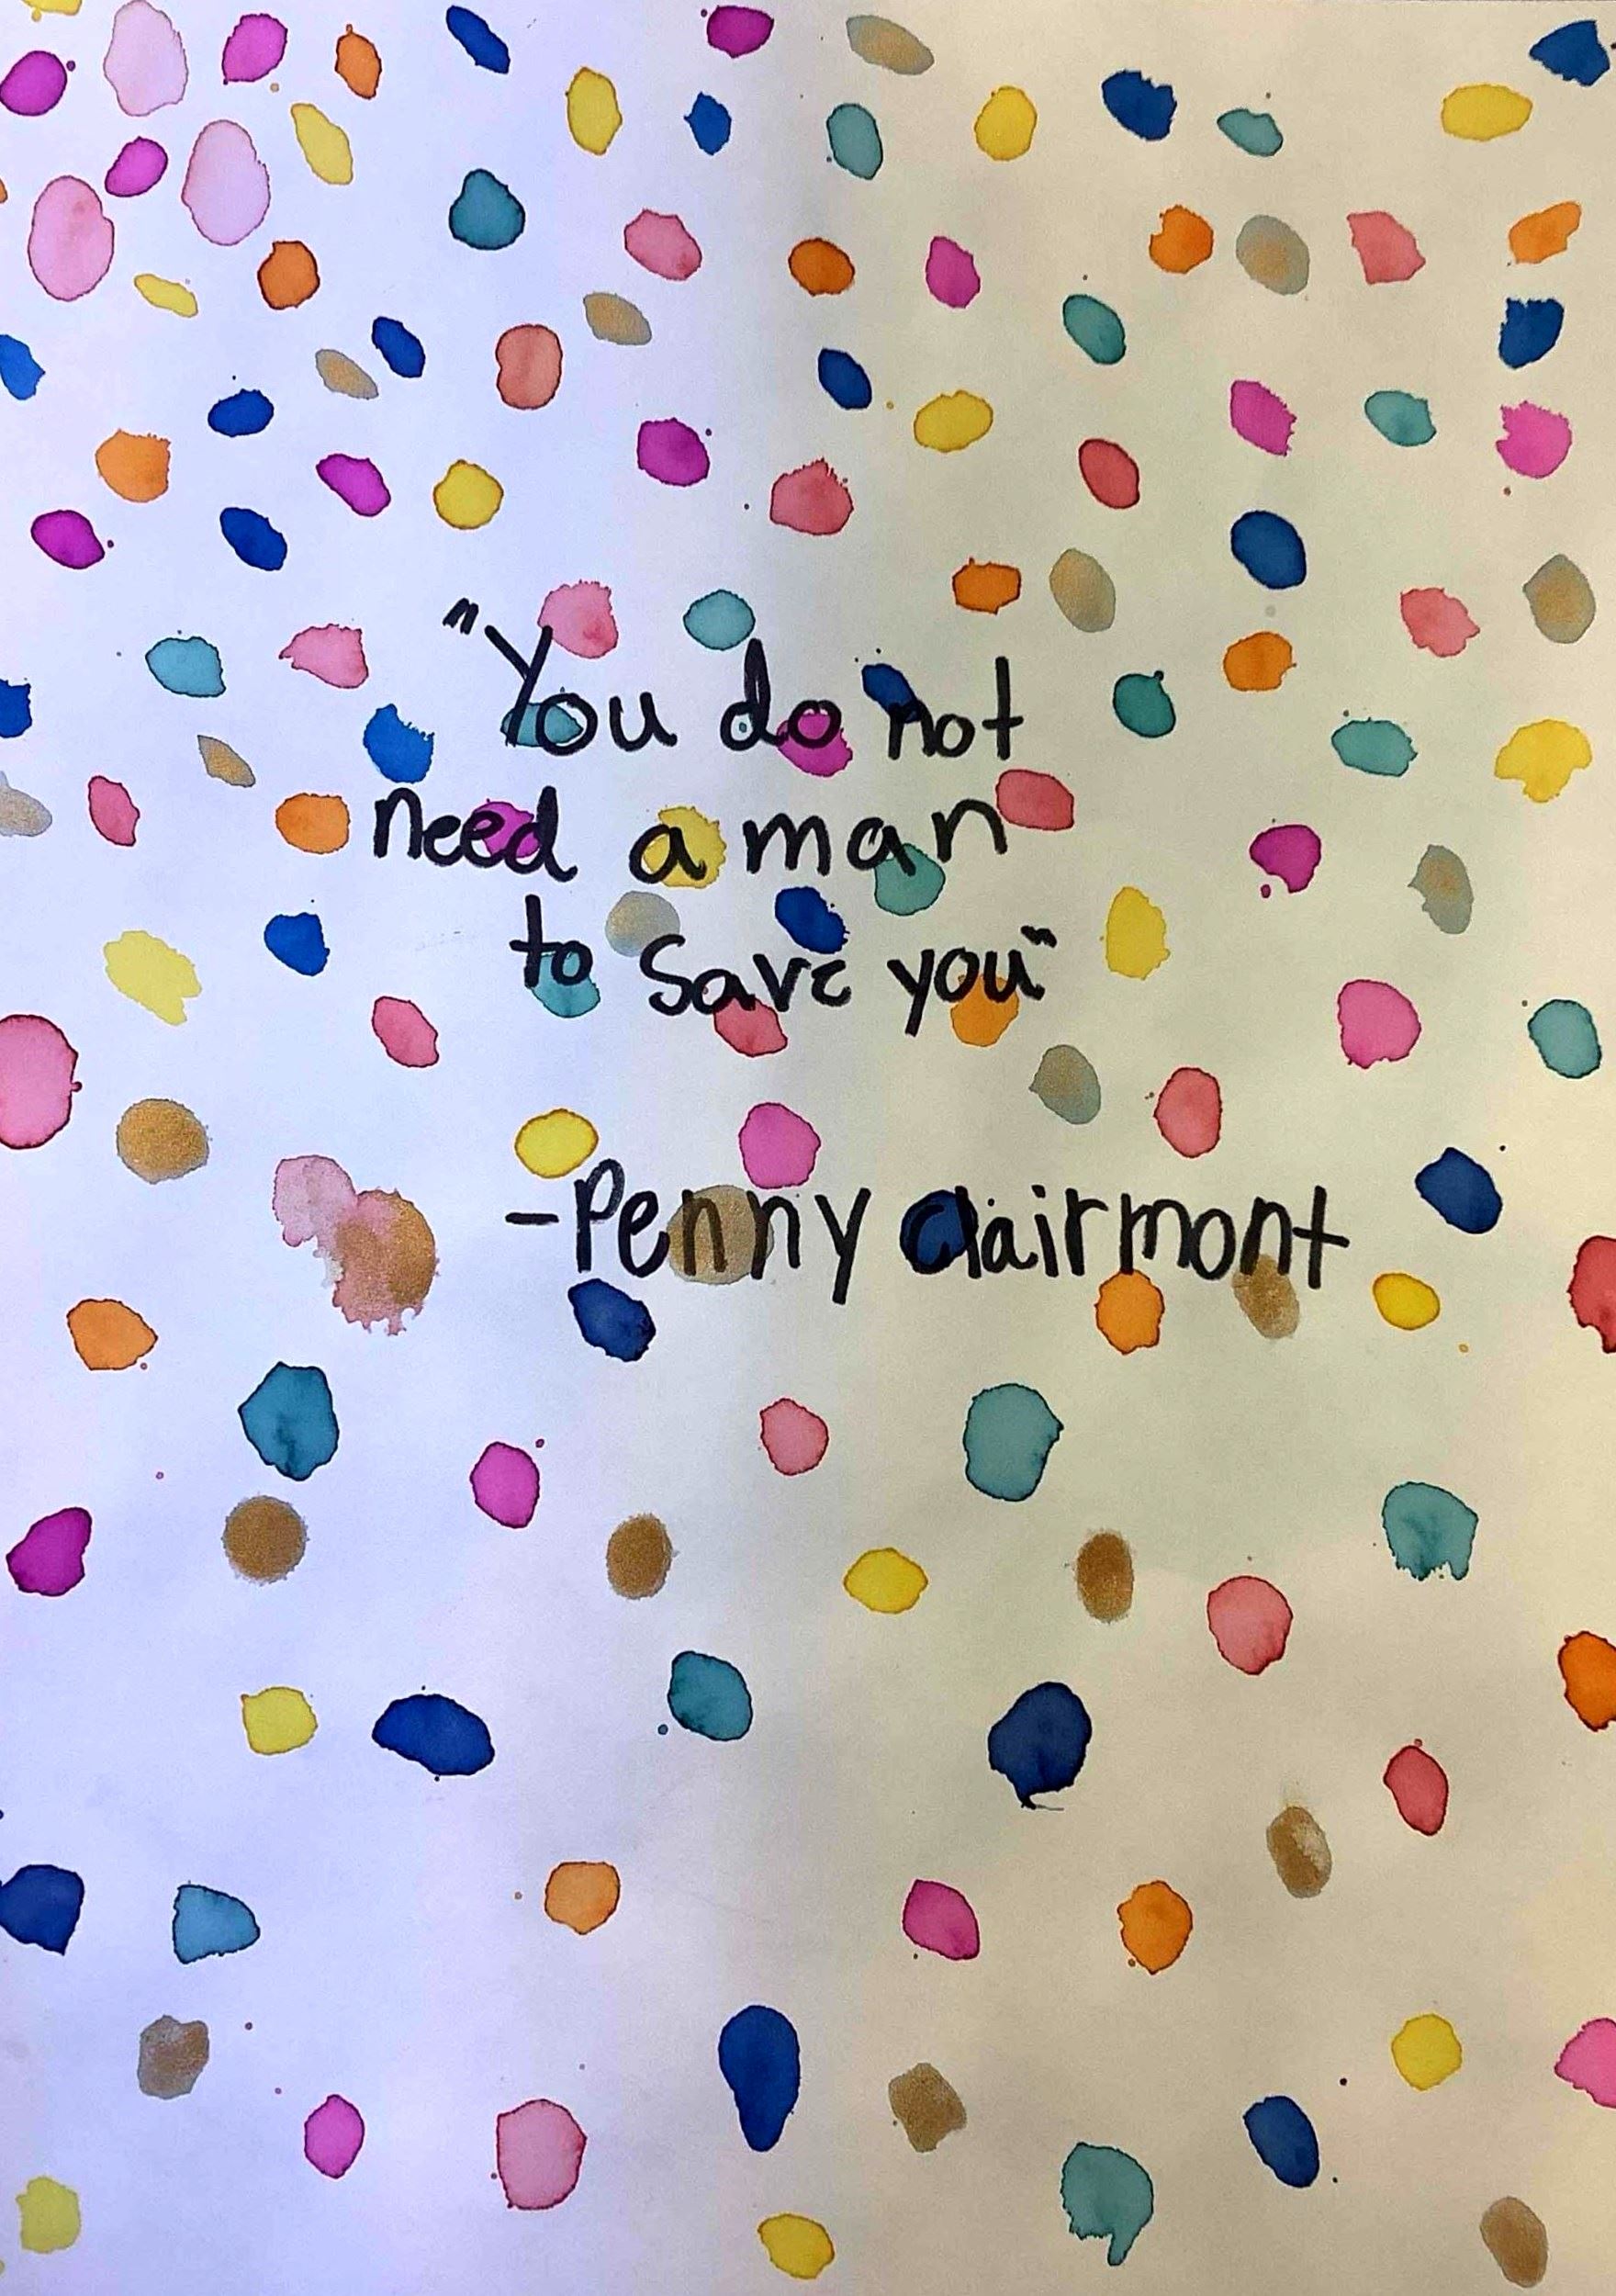 "You do not
need a man
to save you"
-Penny Clairmont